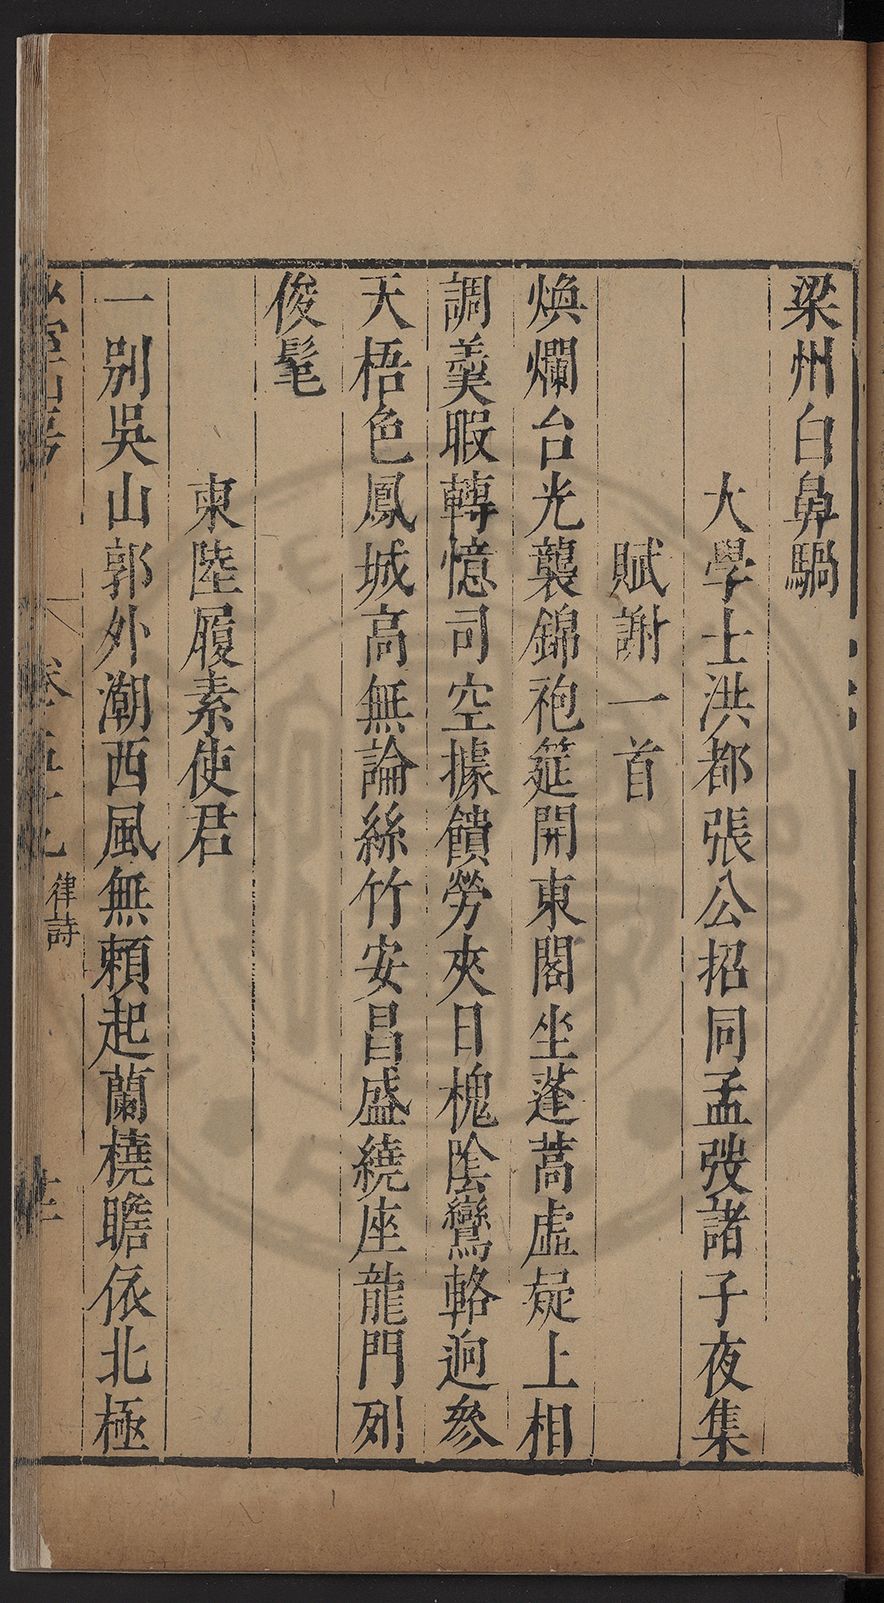 梁州白鼻騧
大學士洪都張公招同孟弢諸子夜集
賦謝一首
煥爛台光襲錦袍筵開東閣坐蓬蒿虛疑上相
調羹暇轉憶司空據饋勞夾日槐陰鸞輅迥參
天梧色鳳城高無論絲竹安昌盛繞座龍門列
俊髦
柬陸履素使君
一別吳山郭外潮西風無賴起蘭橈瞻依北極
山房 卷五十 律詩